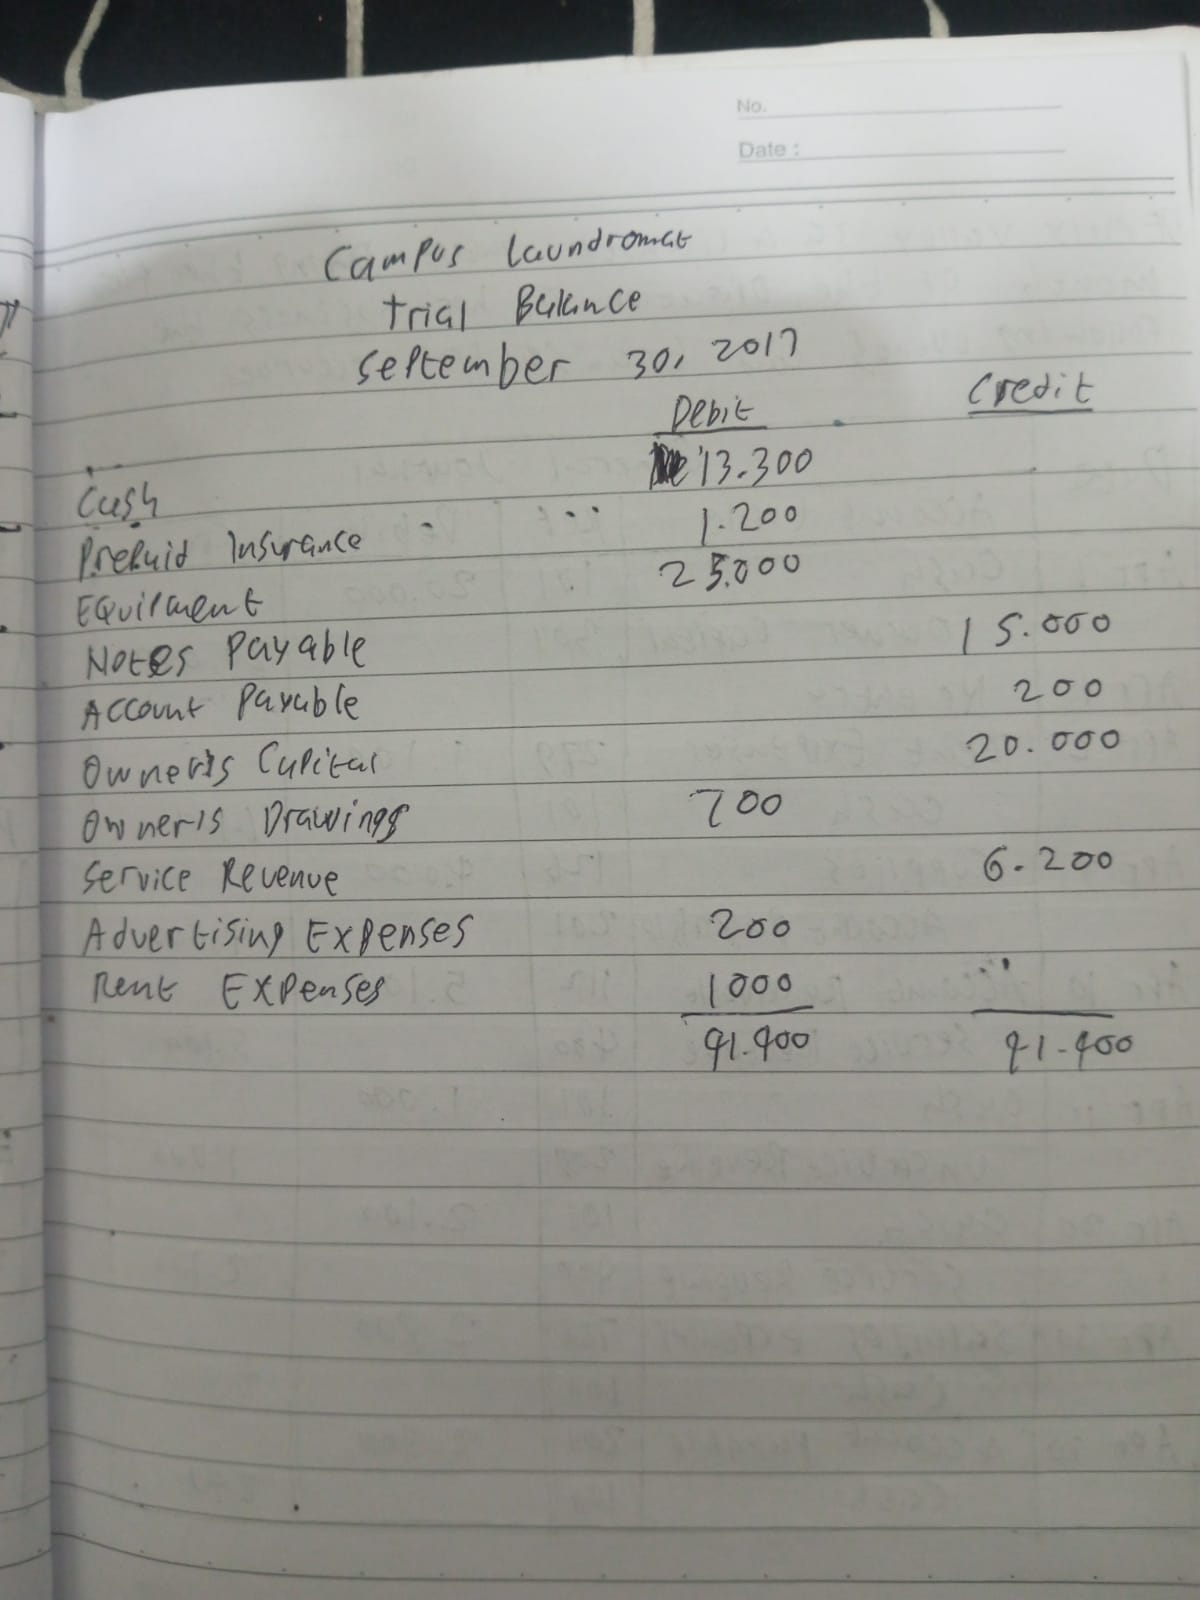 No.
Date :
Campus Laundromat
Trial Balance
September 30, 2017
Debit Credit
Cash 13.300
Prepaid Insurance 1.200
Equipment 25.000
Notes Payable 15.000
Account Payable 200
Owner's Capital 20.000
Owner's Drawings 700
Service Revenue 6.200
Advertising Expenses 200
Rent Expenses 1000
41.400 41.400